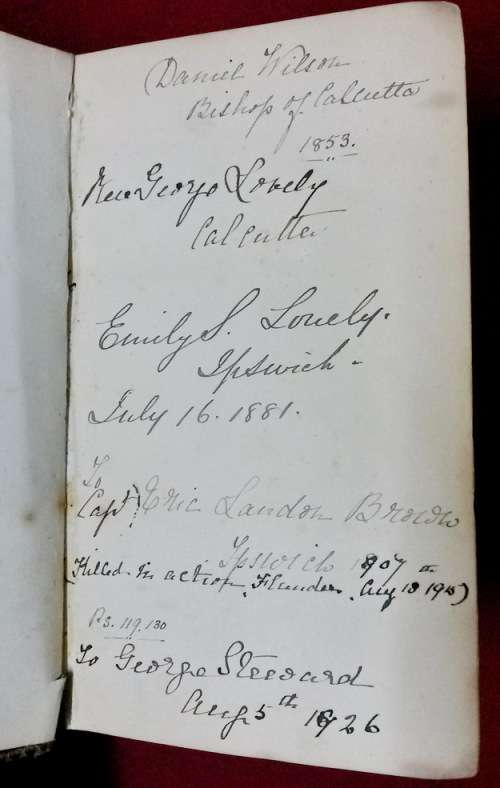 Daniel Wilson
Bishop of Calcutta
1853.
Rev George Lovely
Calcutta
Emily S. Lovely.
Ipswich -
July 16. 1881.
To
Capt Eric Landon Brown
Ipswich 1907
(Killed in action, Flanders, Aug 18th
Ps. 119. 130
To George Steward
Aug 5th 1926